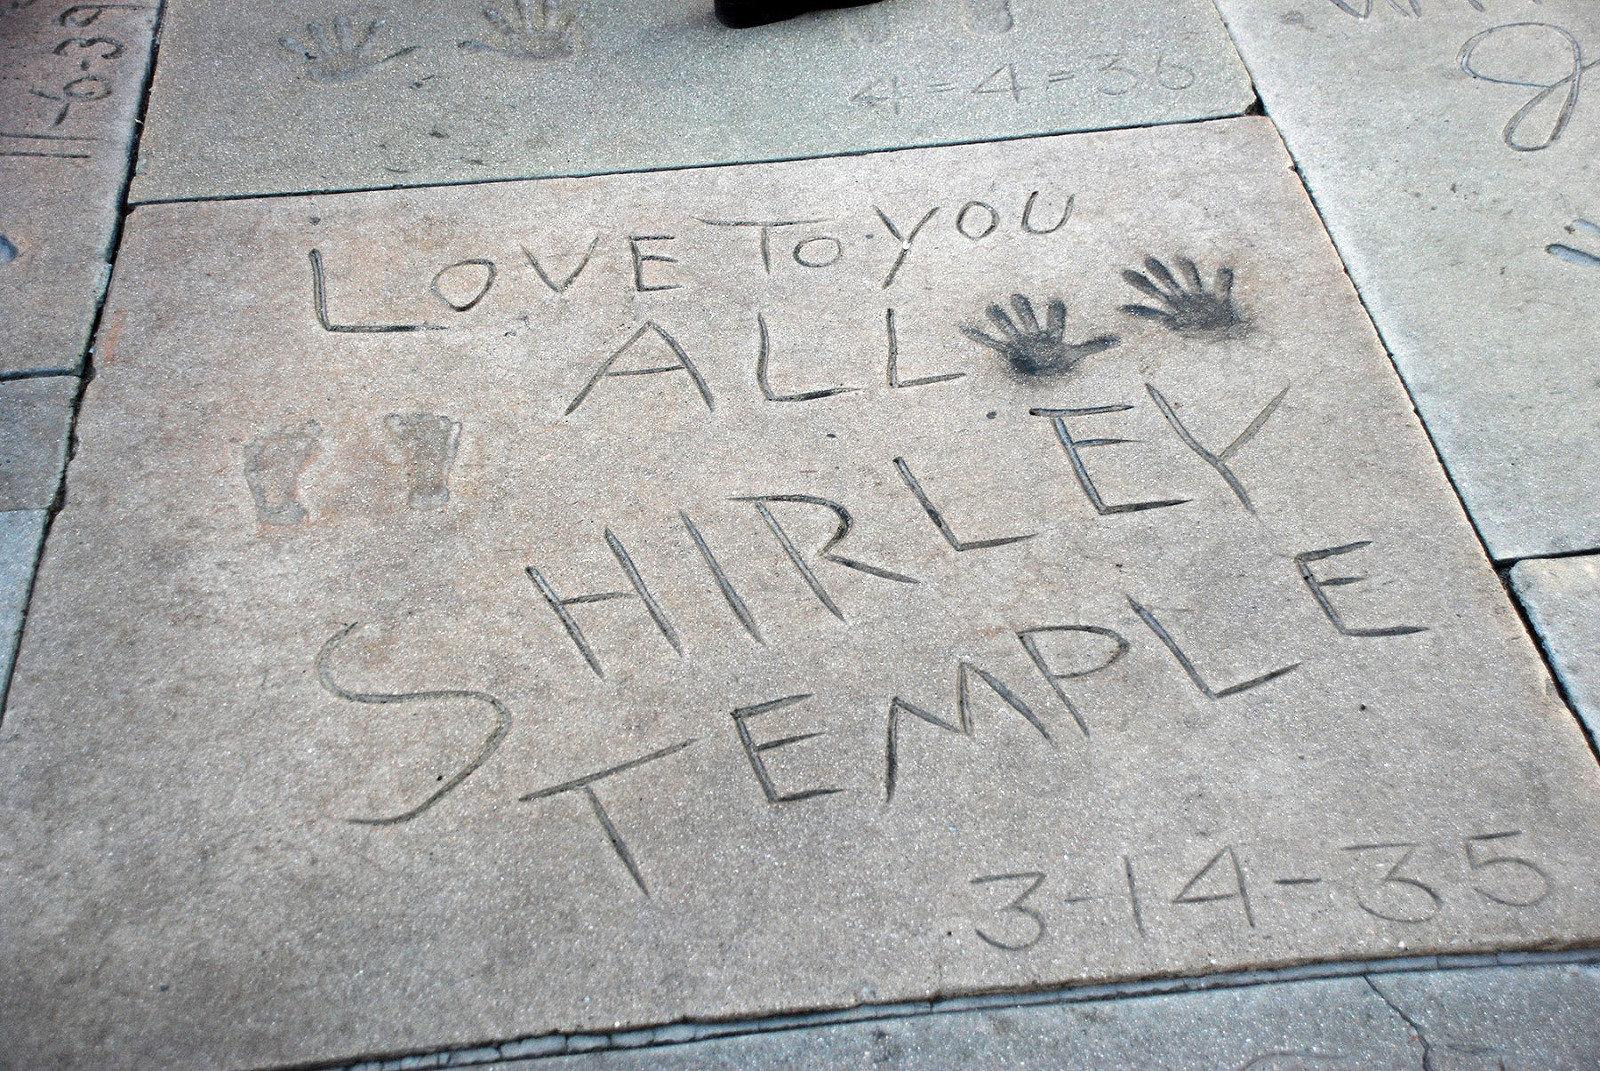 11-6-39
4-4-36
LOVE TO YOU
ALL
SHIRLEY
TEMPLE
3-14-35